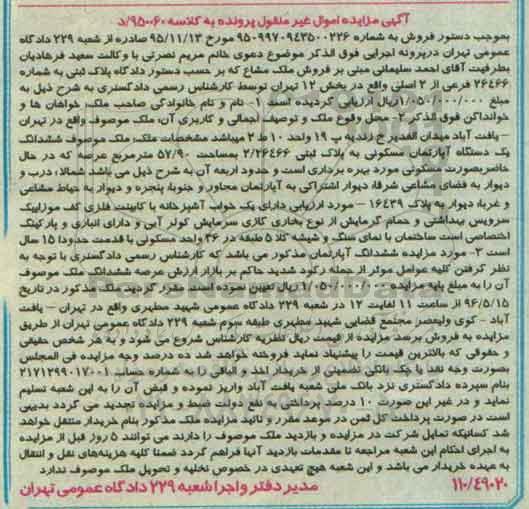 آگهی مزایده اموال غیر منقول پرونده به کلاسه ۹۵۰۰۶۰/د
بموجب دستور فروش به شماره ۹۵۰۹۹۷۰۹۴۳۵۰۰۲۲۶ مورخ ۹۵/۱۱/۱۳ صادره از شعبه ۲۲۹ دادگاه
عمومی تهران درپرونه اجرایی فوق الذکر موضوع دعوی خانم مریم نصرتی با وکالت سعید فرهادیان
بطرفیت آقای احمد سلیمانی مبنی بر فروش ملک مشاع که بر حسب دستور دادگاه پلاک ثبتی به شماره
۲۶۴۶۶ فرعی از ۲ اصلی واقع در بخش ۱۲ تهران توسط کارشناس رسمی دادگستری به شرح ذیل به
مبلغ ۱/۰۵۰/۰۰۰/۰۰۰ ریال ارزیابی گردیده است ۱- نام و نام خانوادگی صاحب ملک، خواهان ها و
خواندگان فوق الذکر ۲- محل وقوع ملک و توصیف اجمالی و کاربری آن: ملک موصوف واقع در تهران
– یافت آباد میدان الغدیر خ زندیه پ ۱۹ واحد ۱۰ ط ۲ میباشد مشخصات ملک: ملک موصوف ششدانگ
یک دستگاه آپارتمان مسکونی به پلاک ثبتی ۲/۲۶۴۶۶ بمساحت ۵۲/۹۰ مترمربع عرصه که در حال
حاضربصورت مسکونی مورد بهره برداری است و حدود اربعه آن به شرح ذیل می باشد شمالا: درب و
دیوار به فضای مشاعی شرقا: دیوار اشتراکی به آپارتمان مجاور و جنوبا: پنجره و دیوار به حیاط مشاعی
و غربا: دیوار به پلاک ۱۶۴۳۹ – مورد ارزیابی دارای یک خواب آشپزخانه با کابینت فلزی کف موزاییک
سرویس بهداشتی و حمام گرمایش از نوع بخاری گازی سرمایش کولر آبی و دارای انباری و پارکینگ
اختصاصی است ساختمان با نمای سنگ و شیشه کلا ۵ طبقه در ۳۶ واحد مسکونی با قدمت حدودا ۱۵ سال
است ۳- مورد مزایده ششدانگ آپارتمان مذکور می باشد که کارشناس رسمی دادگستری با توجه به
نظر گرفتن کلیه عوامل موثر از جمله رکود شدید حاکم بر بازار ارزش عرصه ششدانگ ملک موصوف
آن را به مبلغ پایه مزایده ۱/۰۵۰/۰۰۰/۰۰۰ ریال تعیین نموده است مقرر گردید ملک مذکور در تاریخ
۹۶/۵/۱۵ از ساعت ۱۱ لغایت ۱۲ در شعبه ۲۲۹ دادگاه عمومی شهید مطهری واقع در تهران – یافت
آباد – کوی ولیعصر مجتمع قضایی شهید مطهری طبقه سوم شعبه ۲۲۹ دادگاه عمومی تهران از طریق
مزایده به فروش برسد مزایده از قیمت ریال نظریه کارشناس شروع می شود و به هر شخص حقیقی
و حقوقی که بالاترین قیمت را پیشنهاد نماید فروخته خواهد شد ده درصد وجه مزایده فی المجلس
بصورت وجه نقد یا چک بانکی تضمینی از خریدار اخذ و الباقی را به شماره حساب ۲۱۷۱۲۹۹۰۱۷۰۰۱
بنام سپرده دادگستری نزد بانک ملی شعبه یافت آباد واریز نموده و قبض آن را به این شعبه تسلیم
نماید و در غیر این صورت ۱۰ درصد پرداختی به نفع دولت ضبط و مزایده تجدید می گردد بدیهی
است در صورت پرداخت کل ثمن در موعد مقرر و تائید مزایده ملک مذکور بنام خریدار منتقل خواهد
شد کسانیکه تمایل شرکت در مزایده و بازدید ملک موصوف را دارند می توانند ۵ روز قبل از مزایده
به اجرای احکام این شعبه مراجعه تا مقدمات بازدید آنها فراهم گردد ضمنا کلیه هزینه‌های نقل و انتقال
به عهده خریدار می باشد و این شعبه هیچ تعهدی در خصوص تخلیه و تحویل ملک موصوف ندارد
۱۱۰/۴۹۰۲۰ مدیر دفتر و اجرا شعبه ۲۲۹ دادگاه عمومی تهران